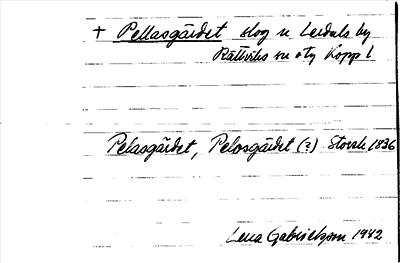 + Pellasgärdet skog n Lerdals by
Rättviks sn o tg Kopp l
Pelasgärdet, Pelosgärdet (?) Storsk 1836
Lena Gabrielsson 1942